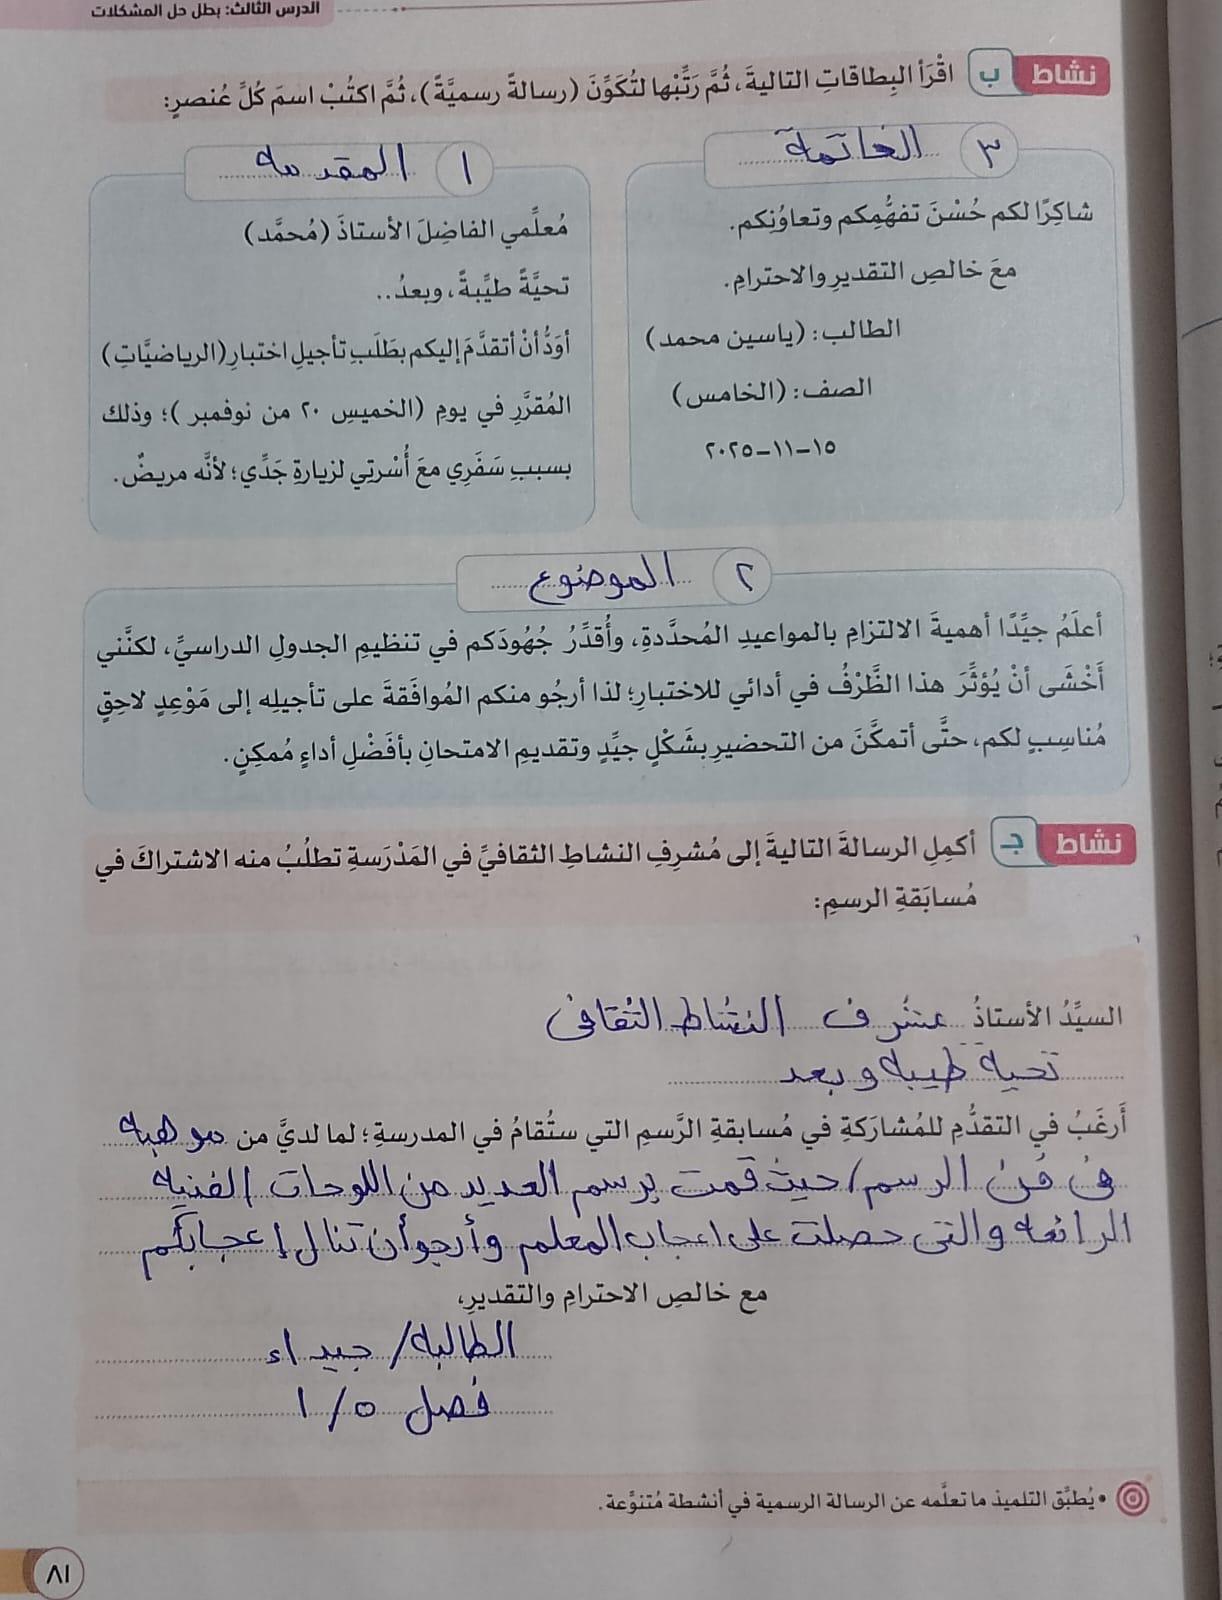 الدرس الثالث: بطل حل المشكلات
نشاط ب اقْرَأ البِطاقاتِ التاليةَ، ثُمَّ رَتِّبْها لتُكَوِّنَ (رسالةً رسميَّةً)، ثُمَّ اكتُبْ اسمَ كُلِّ عُنصرٍ:
٣ الخاتمة
شاكِرًا لكم حُسْنَ تفهُّمِكم وتعاوُنِكم.
معَ خالصِ التقديرِ والاحترامِ.
الطالب: (ياسين محمد)
الصف: (الخامس)
١٥-١١-٢٠٢٥
١ المقدمه
مُعلِّمي الفاضِلَ الأستاذَ (مُحمَّد)
تحيَّةً طيِّبةً، وبعدُ..
أوَدُّ أنْ أتقدَّمَ إليكم بطَلَبِ تأجيلِ اختبارِ (الرياضيَّاتِ)
المُقرَّرِ في يومِ (الخميسِ ٢٠ من نوفمبر)؛ وذلك
بسببِ سَفَرِي معَ أُسْرتِي لزيارةِ جَدِّي؛ لأنَّه مريضٌ.
٢ الموضوع
أعلَمُ جيِّدًا أهميةَ الالتزامِ بالمواعيدِ المُحدَّدةِ، وأُقدِّرُ جُهُودَكم في تنظيمِ الجدولِ الدراسيِّ، لكنَّني
أَخْشَى أنْ يُؤثِّرَ هذا الظَّرْفُ في أدائي للاختبارِ؛ لذا أرجُو منكم المُوافَقةَ على تأجيلِه إلى مَوْعِدٍ لاحِقٍ
مُناسِبٍ لكم، حتَّى أتمكَّنَ من التحضيرِ بشَكْلٍ جيِّدٍ وتقديمِ الامتحانِ بأفضَلِ أداءٍ مُمكِنٍ.
نشاط جـ أكمِلِ الرسالةَ التاليةَ إلى مُشرِفِ النشاطِ الثقافيِّ في المَدْرَسةِ تطلُبُ منه الاشتراكَ في
مُسابَقةِ الرسمِ:
السيِّدُ الأستاذُ مشرف النشاط الثقافى
تحية طيبه وبعد
أَرغَبُ في التقدُّمِ للمُشارَكةِ في مُسابقةِ الرَّسمِ التي ستُقامُ في المدرسةِ؛ لما لديَّ من موهبه
فى فن الرسم/ حيث قمت برسم العديد من اللوحات الفنيه
الرائعه والتى حصلت على اعجاب المعلم وأرجو أن تنال إعجابكم
مع خالصِ الاحترامِ والتقديرِ،
الطالبه/ جيداء
فصل ٥/١
• يُطبِّق التلميذ ما تعلَّمه عن الرسالة الرسمية في أنشطة مُتنوِّعة.
٨١